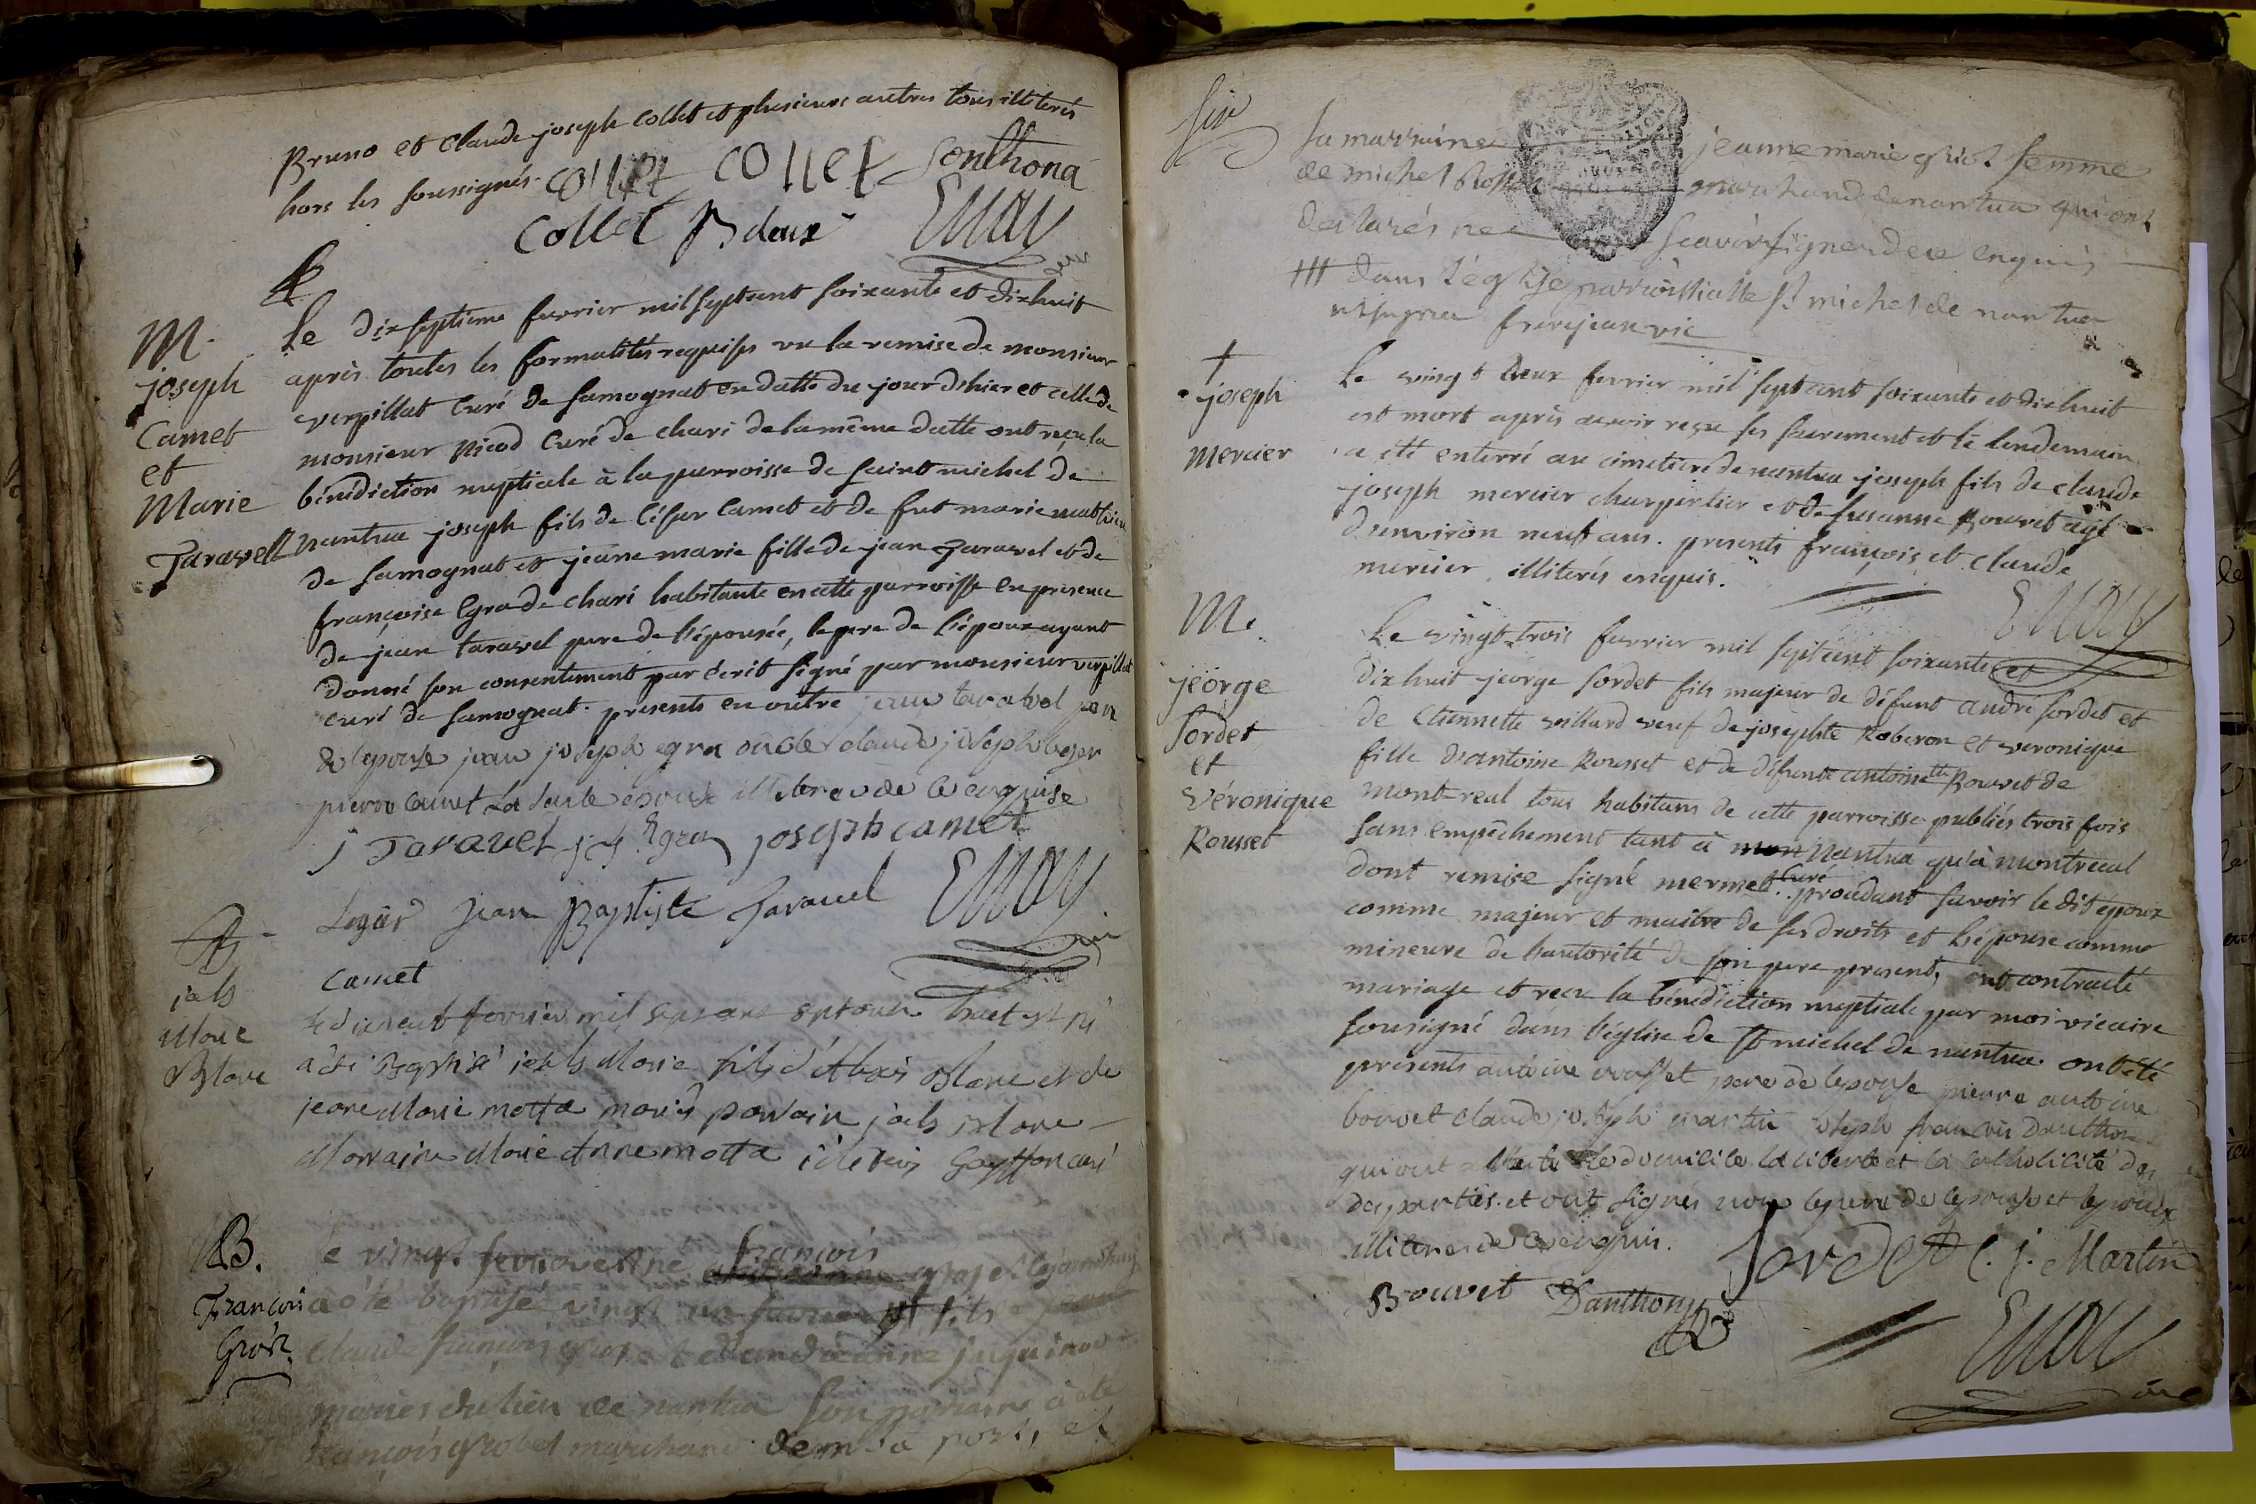 Bruno et Claude joseph Collet et plusieurs autres tous illiterés
hors les soussignés. collet collet Sonthona
collet Bdeux Emay
M. joseph Camet et Marie Taravel
Le dix septieme fevrier mil sept cent soixante et dixhuit
après toutes les formalités requises vu la remise de monsieur
verpillat curé de samognat en datte du jour d'hier et celle de
monsieur Nicod curé de chari de la même datte ont reçu la
bénédiction nuptiale à la parroisse de saint michel de
nantua joseph fils de césar Camet et de fut marie
de samognat et jeanne marie fille de jean Taravel et de
françoise Egra de chari habitante en cette parroisse en presence
de jean taravel pere de l'épousée, le pere de l'époux ayant
donné son consentement par écrit signé par monsieur verpillat
curé de samognat. presents en outre jean taravel pere
de lepouse jean joseph egra oncle claude joseph leger
pierre camet La susdite epouse illiterée de ce enquise
j Taravel j j Egra joseph camet
Legér jean Baptiste Taravel Emay
camet
B jals Marie Blanc
Le dixneuf fevrier mil sept cent septante huit est né
a été Baptisé jals Marie fils d'Alexis Blanc et de
jeane Marie motta mariés parrain jals Blanc
Marraine Marie Anne motta illeterés Gayffon curé
B. François Gros
Le vingt fevrier est né françois
a été baptisé vingt un fevrier fils
claude françois
mariés du lieu de nantua son parrain a été
françois grobet marchand dem. a port, et
six
sa marraine jeanne marie femme
de michel marchand de nantua qui ont
declarés ne scavoir signer de ce enquis
+++ dans l'église parroissialle st michel de nantua
ut supra frerejean vic
† joseph Mercier
Le vingt deux fevrier mil sept cent soixante et dixhuit
est mort après avoir reçu ses sacrement et le lendemain
a été enterré au cimetiere de nantua joseph fils de claude
joseph mercier charpentier et de susanne Bouvet agé
d'environ neuf ans. presents françois et claude
mercier illiterés enquis.
Emay
M. jeörge Sordet et Véronique Rousset
Le vingt-trois fevrier mil sept cent soixante et
dixhuit jeorge sordet fils majeur de défunt andré sordet et
de Etiennette villard veuf de josephte Roberon et veronique
fille d'antoine Rousset et de défunte antoinette Bouvet de
mont-real tous habitans de cette parroisse publiés trois fois
sans empêchement tant à Nantua qu'à montreal
dont remise signé mermet curé. procédant savoir le dit époux
comme majeur et maitre de ses droits et l'épouse comme
mineure de l'autorité de son pere present, ont contracté
mariage et reçu la bénédiction nuptiale par moi vicaire
sousigné dans l'église de St michel de nantua ont été
presents antoine rousset pere de lepouse pierre antoine
bouvet claude joseph martin joseph françois Danthon
qui ont attesté le domicile la liberté et la catholicité des
des parties. et ont signés non le pere de lepouse et lepouse
illiterés de ce enquis. Sordet C. j. Martin
Bouvet Danthon
Emay vic